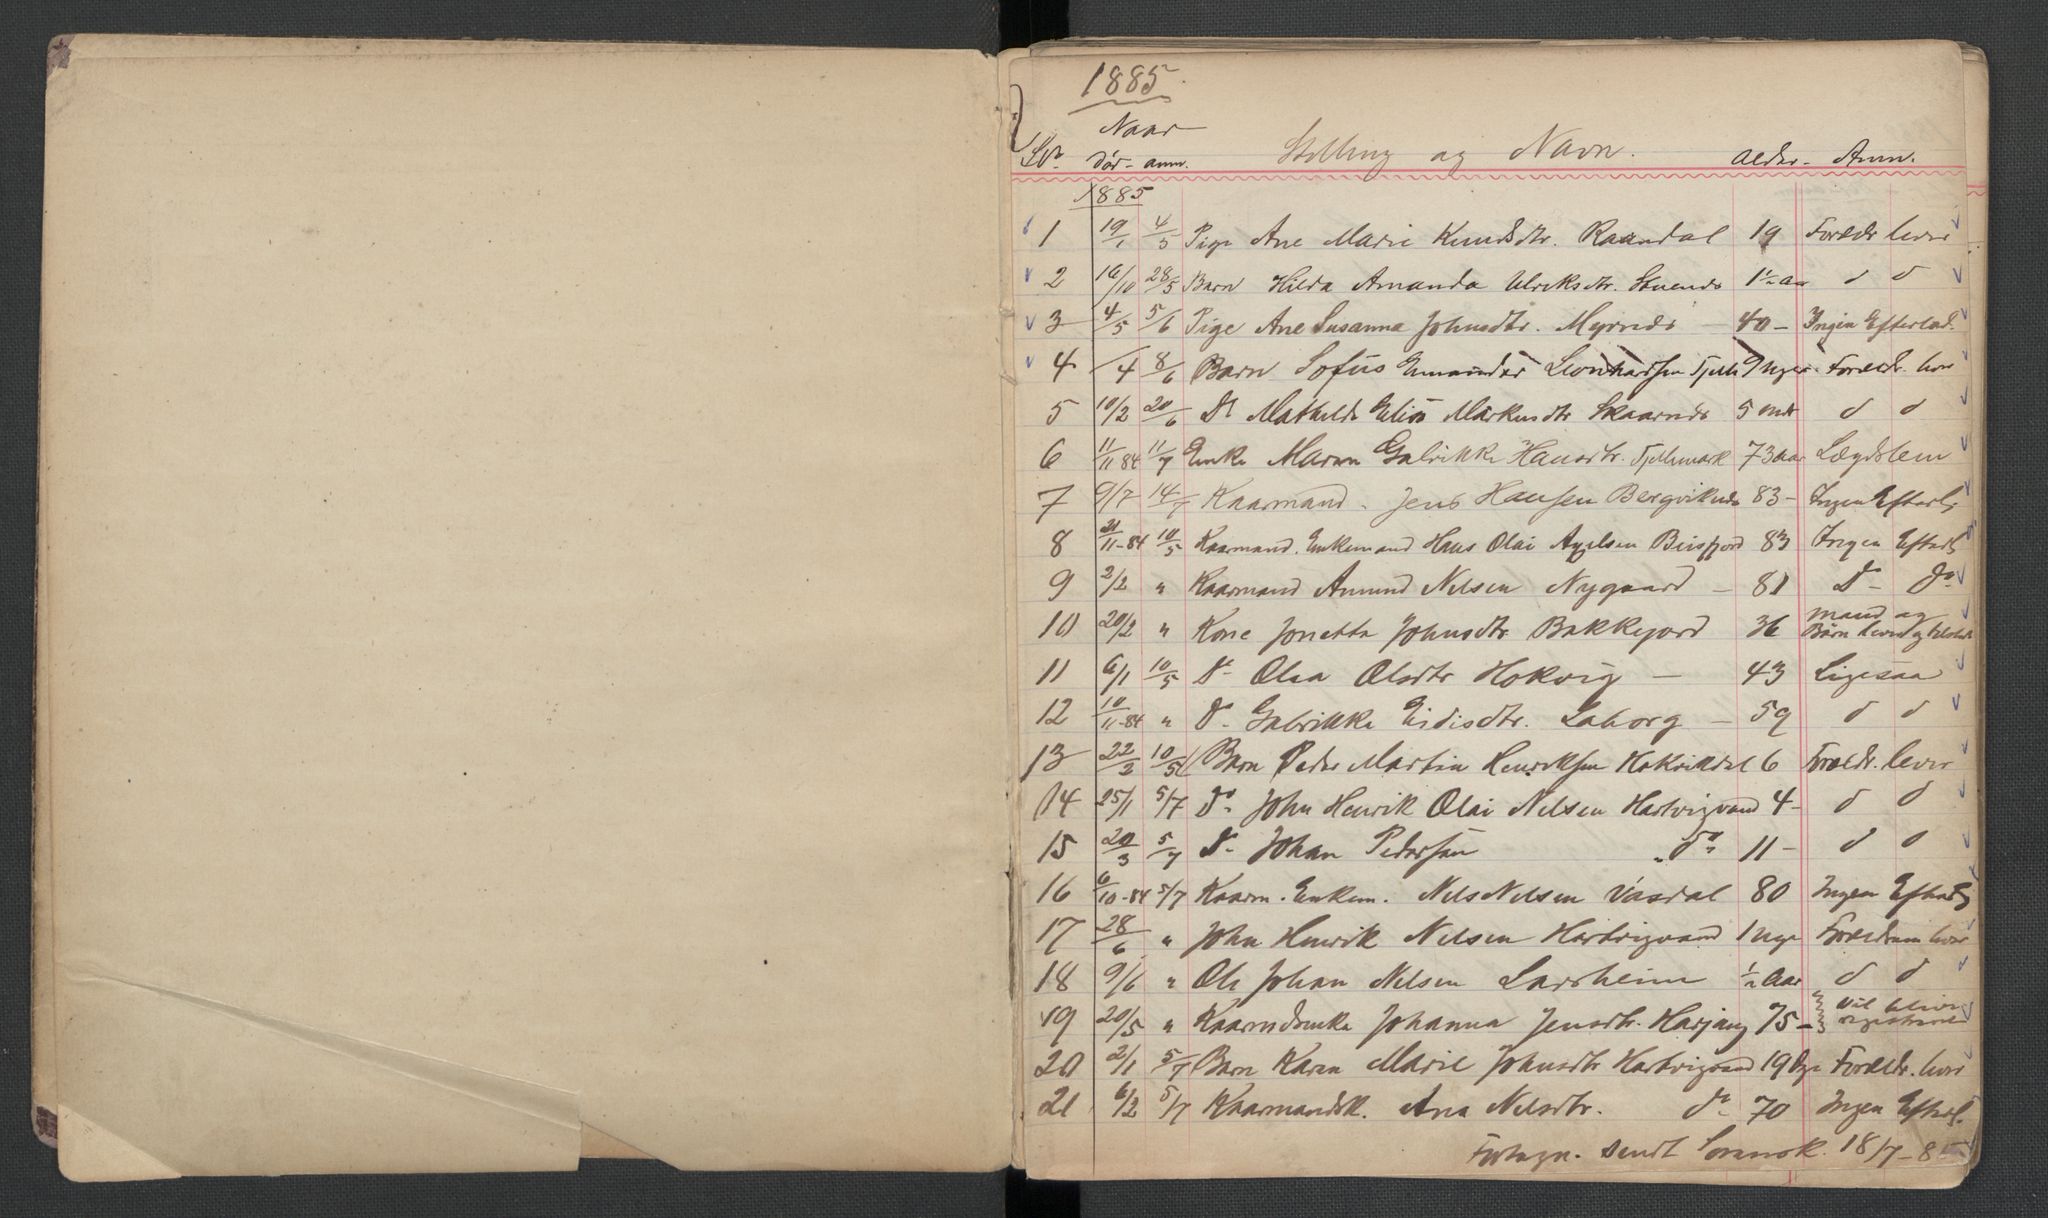 1885.
Naar
Død - anm. Stilling og Navn. Alder - Anm.
1885
1 19/1 4/5 Pige Ane Marie Knudsdtr. Raandal 19 Foreldr lever
2 16/10 28/5 Barn Hilda Amanda Ulriksdtr. 1 1/2 aar d d
3 4/5 5/6 Pige Ane Susanna Johnsdtr. Myrnes - 40 - Ingen Efterlad.
4 /4 8/6 Barn Sofus Leonhardsen 9 Uger - Foreldr. lever
5 10/2 20/6 Do Mathilde Markusdtr Skaarnes 5 mdr d d
6 11/11 84 11/7 Enke Maren Gabrikke Hansdtr. 73 aar Lægdslem
7 9/7 14/7 Kaarmand. Jens Hansen Bergviknes 83 - Ingen Efterl.
8 21/11-84 10/5 Kaarmand. Enkemand Hans Olai Axelsen Beisfjord 83 Ingen Efterl.
9 2/2 " Kaarmand Amund Nilsen Nygaard - 81 Do - Do
10 20/2 " Kone Jonetta Johnsdtr Bakkejord 36 mand og
Børn
11 6/1 10/5 Do Olea Olsdtr Hokvig - 43 Ligesaa
12 10/11-84 " Do. Gabrikke Eidisdtr. Laborg - 59 d d
13 22/3 10/5 Barn Peder Martin Henriksen Hokvikdal 6 Foreldr. lever
14 25/1 5/7 Do. John Henrik Olai Nilsen Hartvigvand 4 - d d
15 20/3 5/7 Do Johan Pedersen " Do " 11 - d d
16 6/10-84 5/7 Kaarm. Enkem. Nils Nilsen Vasdal 80 Ingen Efterl.
17 28/6 " John Henrik Nilsen Hartvigvand 1 uge Foreldrene lever
18 9/6 " Ole Johan Nilsen Larsheim 1/2 Aar d d
19 20/5 " Kaarmdsenke Johanna Jensdtr. Harjang 75 - vil blive
registreret
20 2/1 5/7 Barn Karen Marie Johnsdtr Hartvigvand 19 Dge Foreldr. lever
21 6/2 5/7 Kaarmandsk. Ana Nilsdtr. Do 70 Ingen Efterl.
Fortegn. sendt Sorensk. 18/7-85